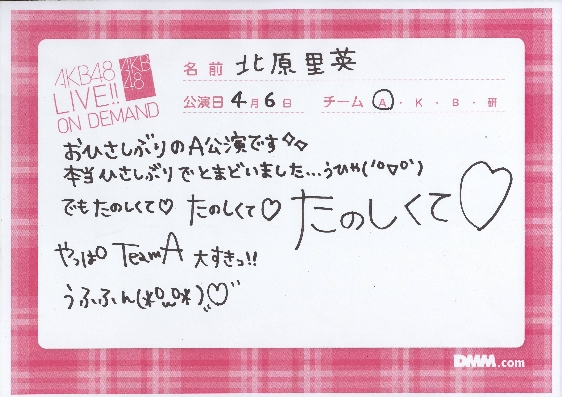 AKB48
LIVE!!
ON DEMAND
AKB
48
名前 北原里英
公演日 4月6日 チーム A・K・B・研
おひさしぶりのA公演です✧✧
本当ひさしぶりでとまどいました...うひゃ('°▽°')
でもたのしくて♡ たのしくて♡ たのしくて♡
やっぱ TeamA 大すきっ!!
うふふん(*°ω°*)"♡"
DMM.com